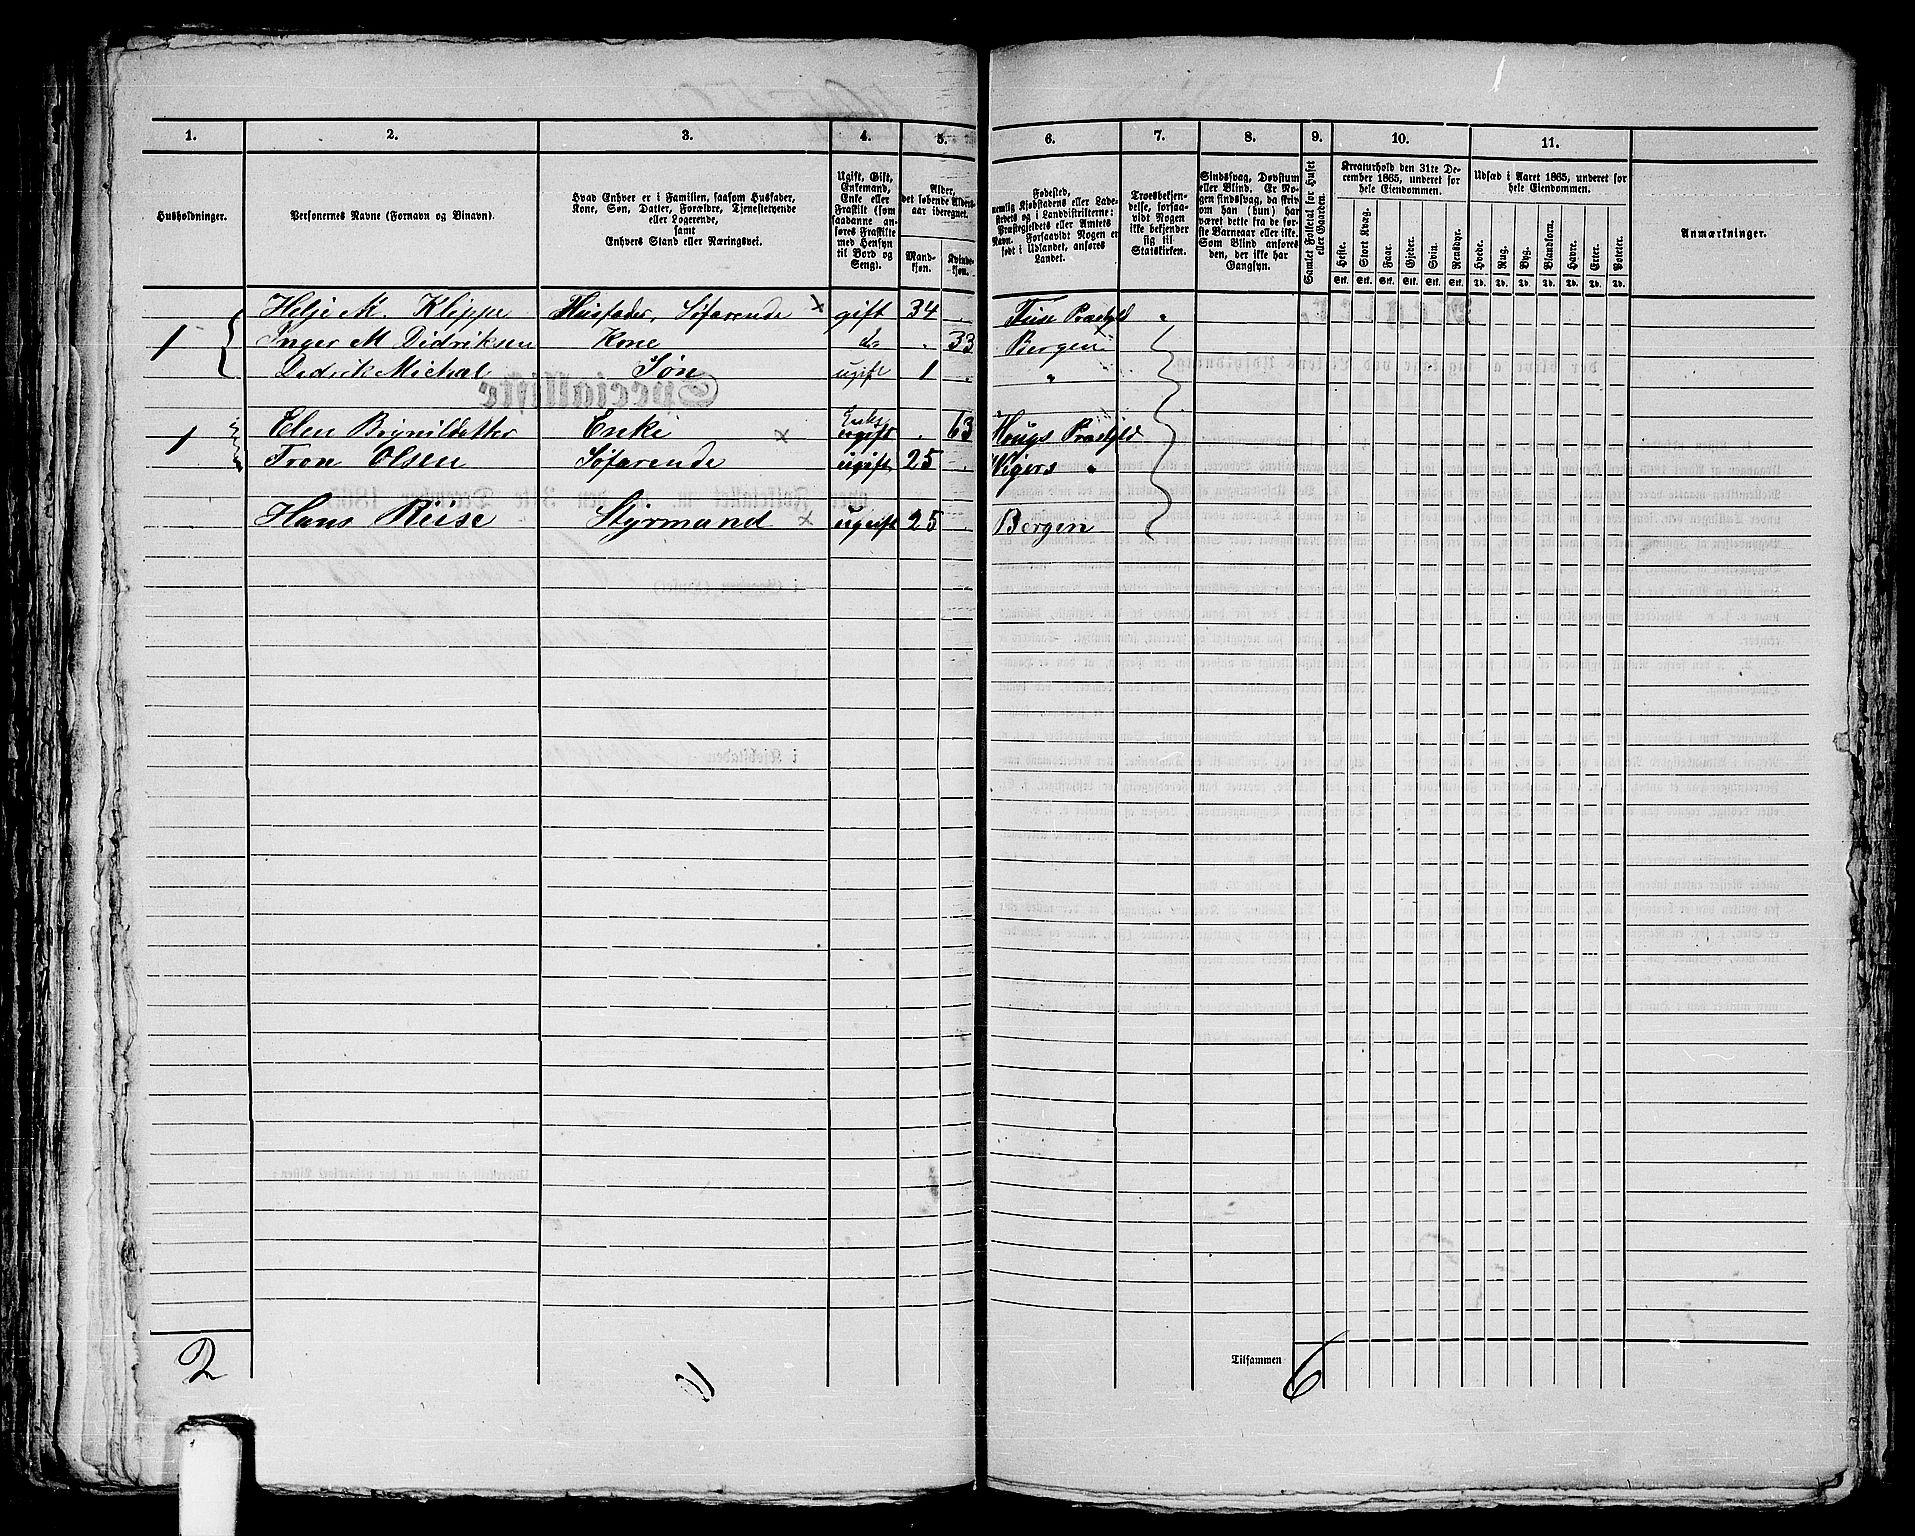 1. 2. 3. 4. 5. 6. 7. 8. 9. 10. 11.
Husholdninger.
Personernes Navne (Fornavn og Binavn).
Hvad Enhver er i Familien, saasom Husfader,
Kone, Søn, Datter, Forældre, Tjenestetyende
eller Logerende,
samt
Enhvers Stand eller Næringsvei.
Ugift, Gift,
Enkemand,
Enke eller
Fraskilt (som
saadanne an-
føres Fraskilte
med Hensyn
til Bord og
Seng).
Alder,
det løbende Alders-
aar iberegnet.
Mand-
kjøn.
Kvinde-
kjøn.
Fødested,
nemlig Kjøbstadens eller Lade-
stedets og i Landdistrikterne:
Præstegjeldets eller Amtets
Navn. Forsaavidt Nogen er
født i Udlandet, anføres
Landet.
Troesbekjen-
delse, forsaa-
vidt Nogen
ikke bekjender
sig til
Statskirken.
Sindssvag, Døvstum
eller Blind. Er No-
gen sindssvag, da skriv
om han (hun) har
været dette fra de før-
ste Barneaar eller ikke.
Som Blind anføres
den, der ikke har
Gangsyn.
Samlet Folketal for Huset
eller Gaarden.
Kreaturhold den 31te De-
cember 1865, underet for
hele Eiendommen.
Heste. Stort Kvæg. Faar. Gjeder. Svin. Rensdyr.
Stk. Stk. Stk. Stk. Stk. Stk.
Udsæd i Aaret 1865, underet for
hele Eiendommen.
Hvede. Rug. Byg. Blandkorn. Havre. Erter. Poteter.
Td. Td. Td. Td. Td. Td. Td.
Anmærkninger.
Helje M. Klippe Husfader, Søfarende × gift 34 . Præstgjld "
1 Inger M Didriksen Kone do . 33 Bergen
Didrik Michal Søn ugift 1 . "
1 Elen Brynildatter Enke × Enke ugift . 63 Hougs Præstgjld
Tron Olsen Søfarende ugift 25 . Wigers "
Hans Reise Styrmand × ugift 25 . Bergen
Tilsammen
2 6